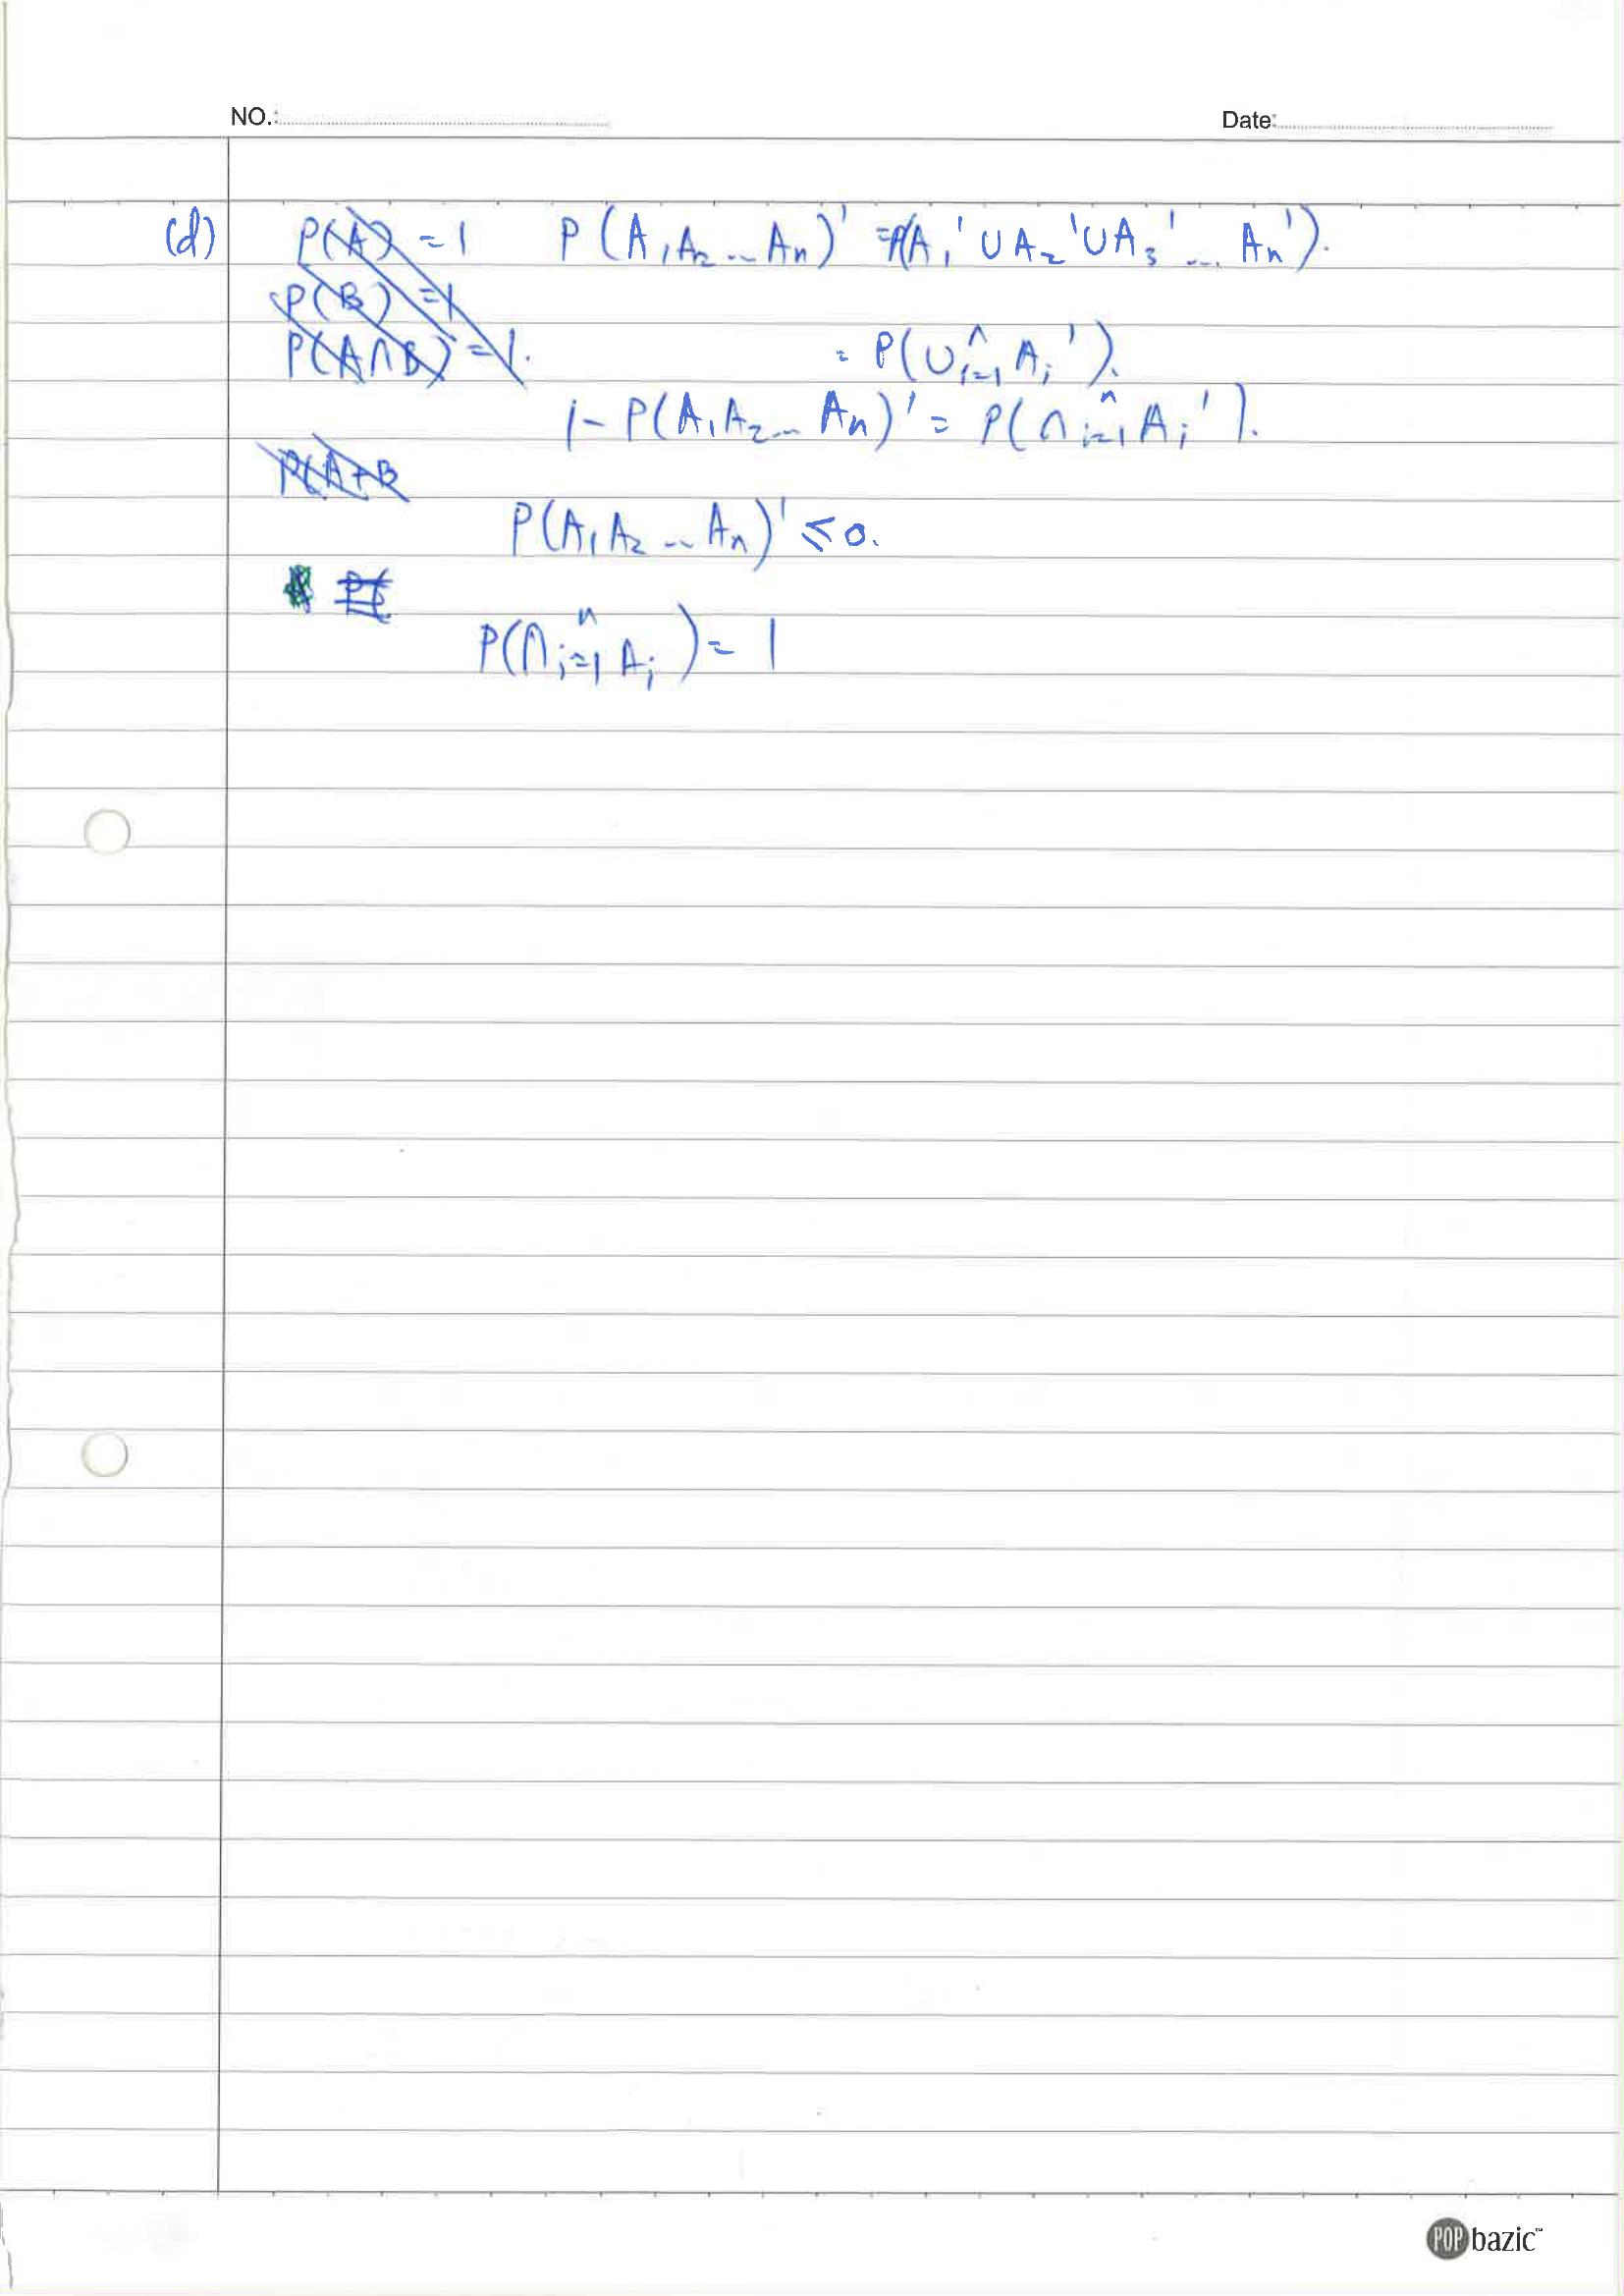 NO.: Date:
(d) P(A) = 1 P(A₁A₂...Aₙ)' = P(A₁'∪A₂'∪A₃'...Aₙ').
P(B) = 1
P(A∩B) = 1. = P(∪ᵢ₌₁ⁿ Aᵢ').
1-P(A₁A₂...Aₙ)' = P(∩ᵢ₌₁ⁿ Aᵢ').
P(A+B
P(A₁A₂...Aₙ)' ≤ 0.
P(∩ᵢ₌₁ⁿ Aᵢ) = 1
POP bazic™